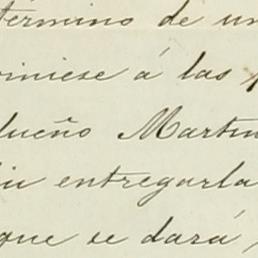 término de un
viniese á las
dueño Martin
entregarla
que se dará,